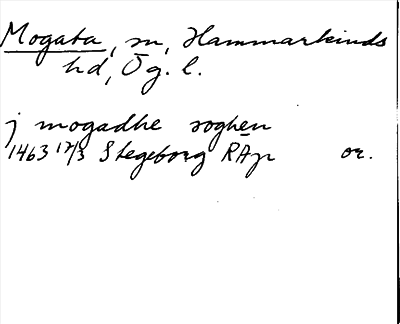 Mogata, sn, Hammarkinds
hd, Ög. l.
j mogadhe soghen
1463 17/3 Stegeborg RAp or.